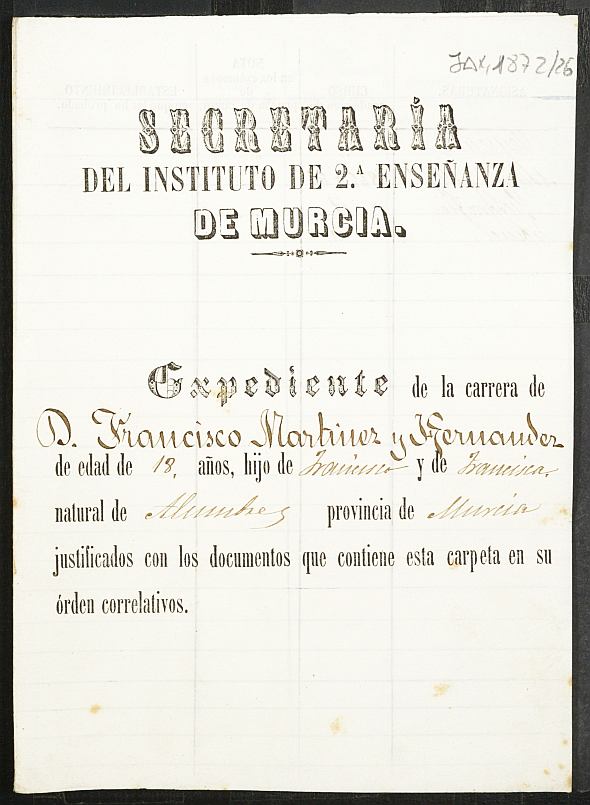 JAX, 1872/26
SECRETARÍA
DEL INSTITUTO DE 2.ª ENSEÑANZA
DE MURCIA.
Expediente de la carrera de
D. Francisco Martinez y Hernandez
de edad de 18, años, hijo de Francisco y de Francisca,
natural de Alumbres provincia de Murcia
justificados con los documentos que contiene esta carpeta en su
órden correlativos.